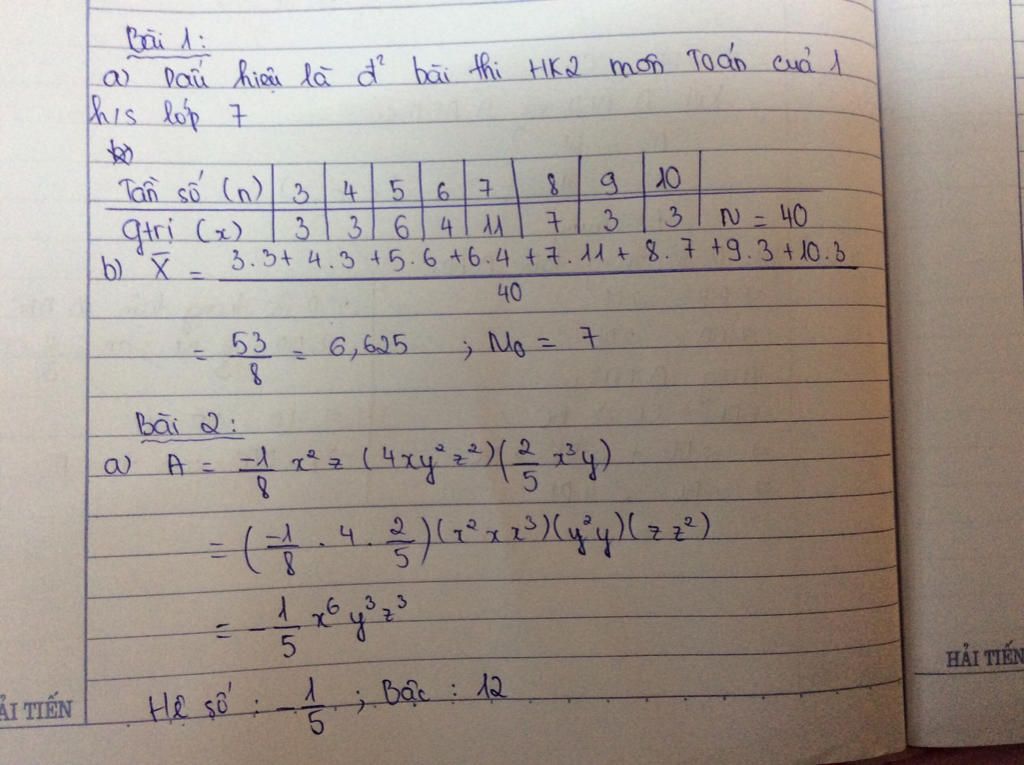 Bài 1:
a) Dấu hiệu là đ² bài thi HK2 môn Toán của 1
h/s lớp 7
Tần số (n) | 3 | 4 | 5 | 6 | 7 | 8 | 9 | 10 |
gtrị (x) | 3 | 3 | 6 | 4 | 11 | 7 | 3 | 3 | N = 40
b) X̄ = (3.3 + 4.3 + 5.6 + 6.4 + 7.11 + 8.7 + 9.3 + 10.3)/40
= 53/8 = 6,625 ; M₀ = 7
Bài 2:
a) A = -1/8 x² z (4xy² z²)(2/5 x³y)
= (-1/8 . 4 . 2/5)(x² x x³)(y² y)(z z²)
= - 1/5 x⁶ y³ z³
Hệ số : - 1/5 ; Bậc : 12
ẢI TIẾN
HẢI TIẾN